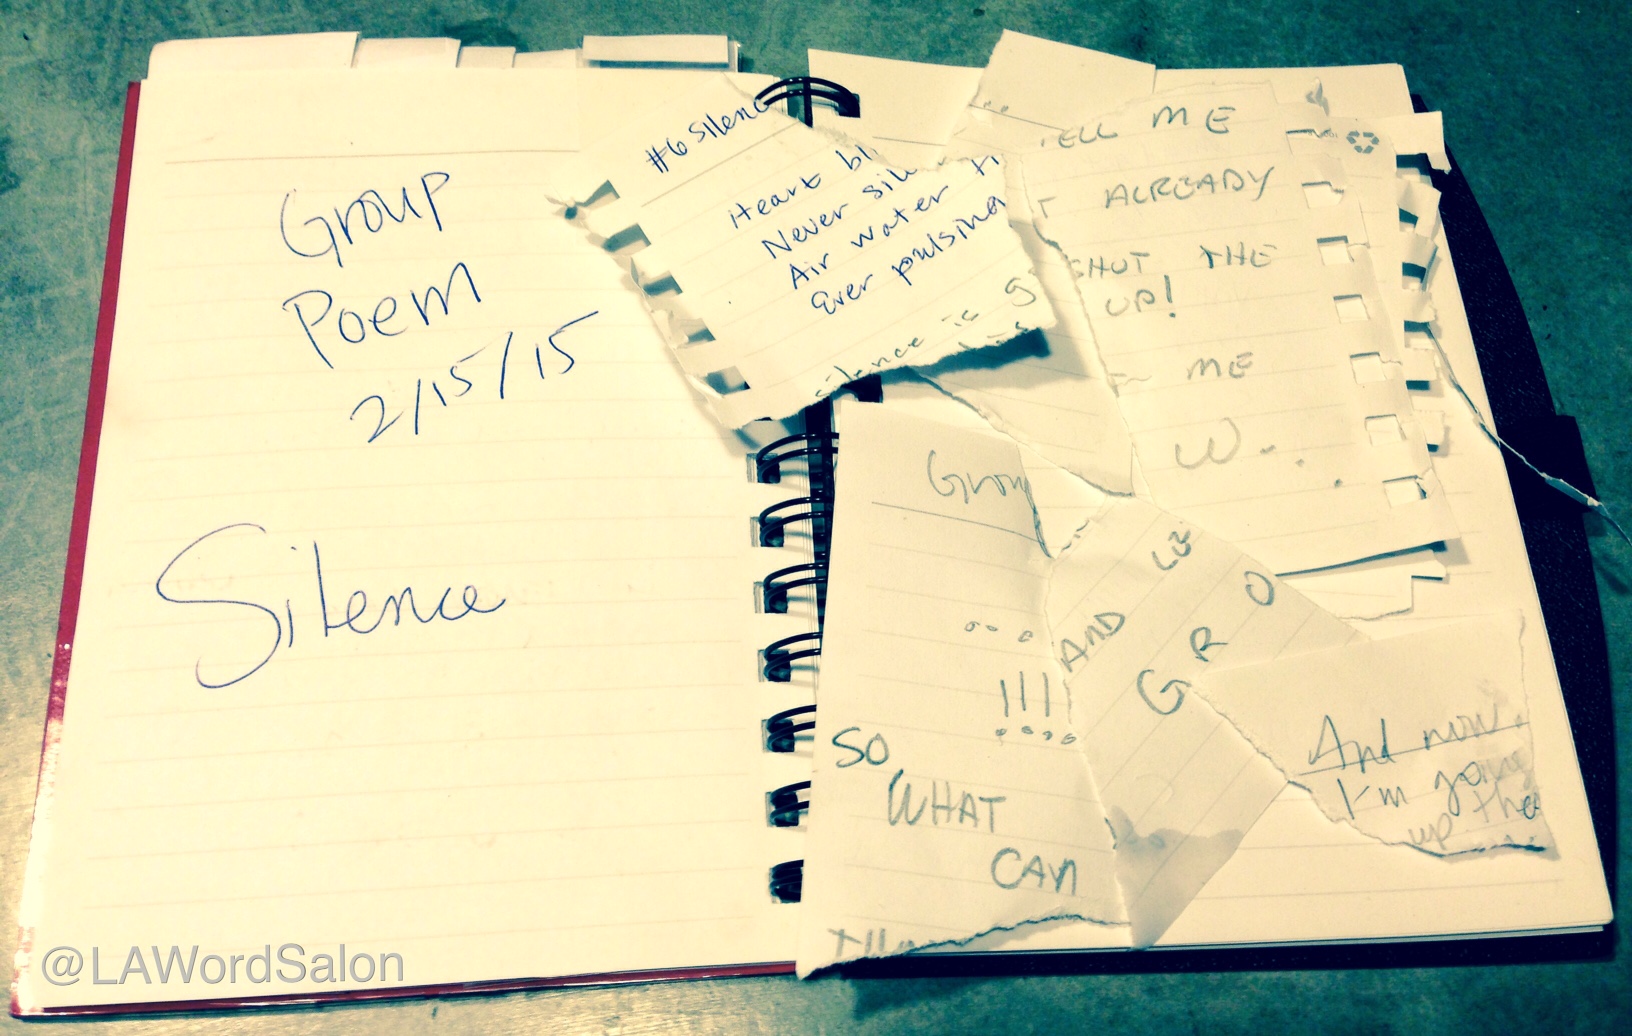 Group
Poem
2/15/15
Silence
#6 Silenc
Heart bl
Never sile
Air water
Ever pulsing
silence is g
ELL ME
T ALREADY
SHUT THE
UP!
ME
W..
Grou
...
!!!!
SO
WHAT
CAN
AND LE
G R O
And now.
I'm going
up the
@LAWordSalon